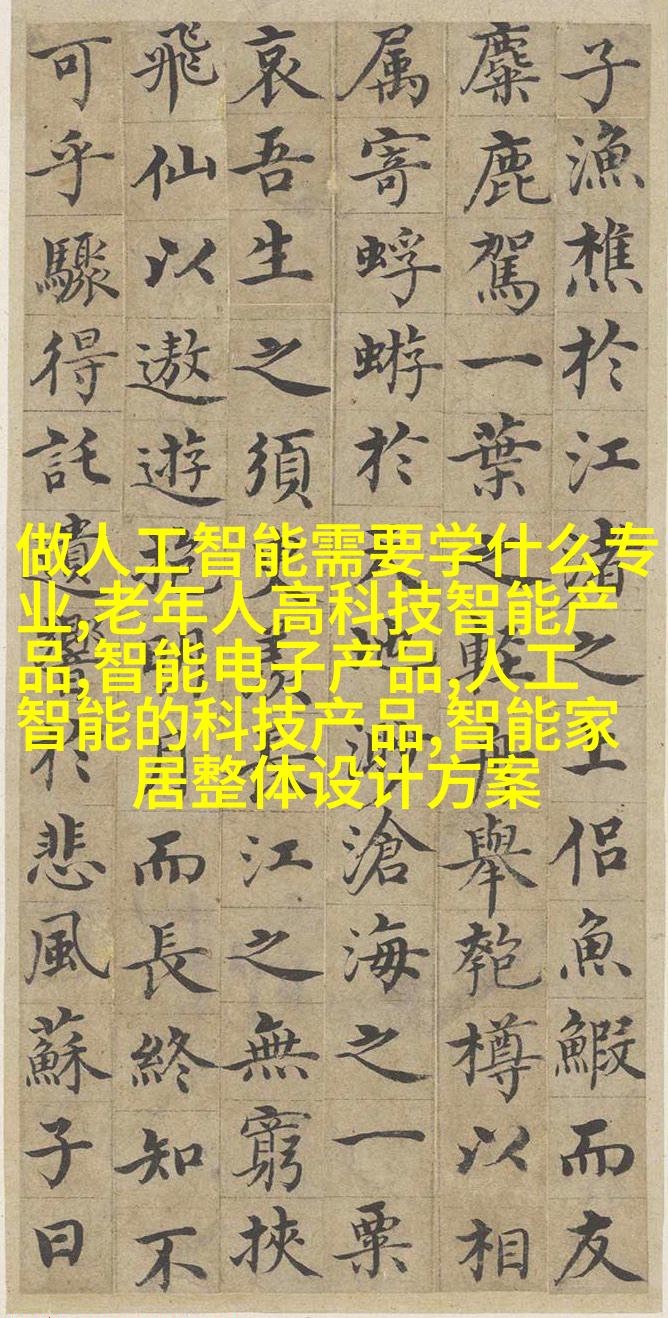 子漁樵於江渚之上侣魚鰕而友
麋鹿駕一葉之輕舟舉匏樽以相
属寄蜉蝣於天地渺滄海之一粟
哀吾生之須臾羨長江之無窮挾
飛仙以遨遊抱明月而長終知不
可乎驟得託遺響於悲風蘇子曰
做人工智能需要学什么专
业,老年人高科技智能产
品,智能电子产品,人工
智能的科技产品,智能家
居整体设计方案